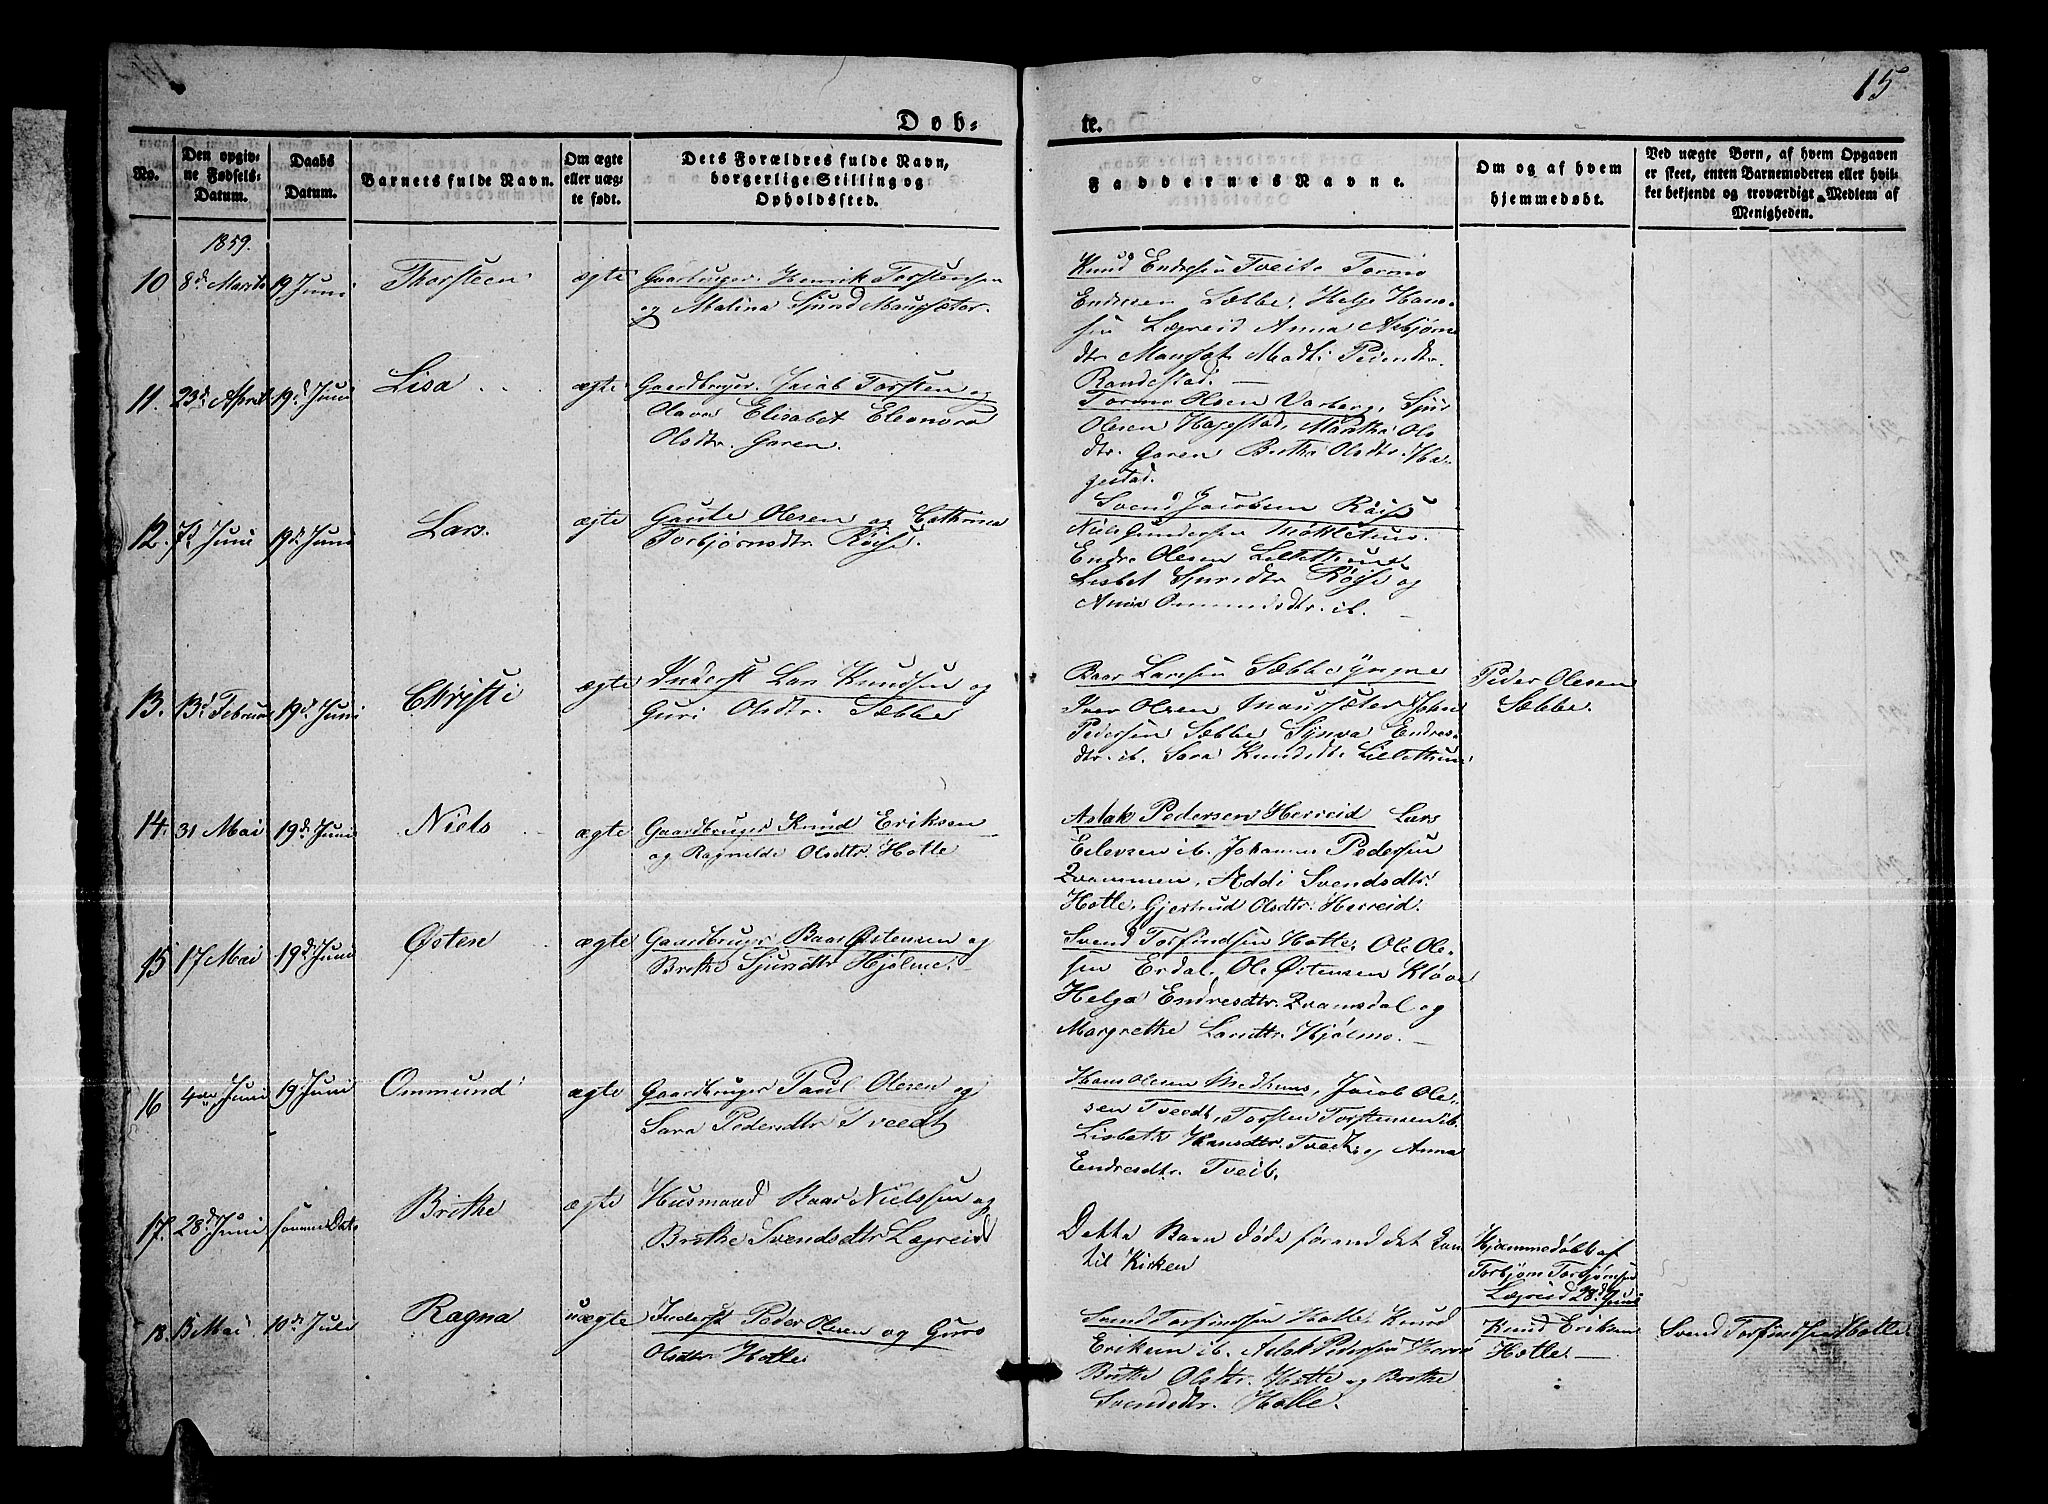 15
Døb-
te.
No.
Den opgiv-
ne Fødsels-
Datum.
Daabs
Datum.
Barnets fulde Navn.
Om ægte
eller uæg-
te født.
Dets Forældres fulde Navn,
borgerlige Stilling og
Opholdssted.
Faddernes Navne.
Om og af hvem
hjemmedøbt.
Ved uægte Børn, af hvem Opgaven
er skeet, enten Barnemoderen eller hvil-
ket bekjendt og troværdigt Medlem af
Menigheden.
1859.
10
8de Marts
19 Juni
Thorsteen
ægte
Gaarbruger Henrik Torstensen
og Malina Sjurd Maursæter.
Knud Endresen Tveito Tormo
Endresen Sæbbe, Helje Han-
sen Lægreid Anna Asbjørns
dtr Maursæt Madli Pedersdtr
Randestad.
11.
23de April
19de Juni
Lisa
ægte
Gaardbruger Jacob Torsten og
Olava Elisabet Eleonora
Olsdtr. Garen.
Tormo Olsen Varberg, Sjur
Olesen Hagestad, Martha Ols
dtr. Garen Britha Olsdtr. Ha-
gestad.
12.
7d Juni
19de Juni
Lars.
ægte
Gaute Olesen og Cathrina
Torbjørnsdtr Røise.
Svend Jacobsen Røise
Niels Gundersen Mökletun.
Endre Olesen Lilletthun
Lisbet Sjursdtr Røise og
Anna Ommundsdtr. ib.
13.
13d Februar
19de Juni
Christi
ægte
Inderst Lars Knudsen og
Guri Olsdtr. Sæbbe
Baar Larsen Sæbbe Yngre
Iver Olsen Maursæter John
Pedersen Sæbbe Synva Endres-
dtr. ib. Sara Knudsdtr Lilletthun
Peder Olesen
Sæbbe.
14.
31 Mai
19de Juni
Niels
ægte
Gaardbruger Knud Eriksen
og Ragnilde Olsdtr. Hotle
Aslak Pedersen Herreid Lars
Eilevsen ib. Johannes Pedersen
Qvammen, Addi Svendsdtr.
Hotle, Gjertrud Olsdtr. Herreid.
15
17 Mai
19de Juni
Østen
ægte
Gaardbruger Baar Østensen og
Brithe Sjursdtr Hjølme.
Svend Torfindsen Hotle, Ole Ole-
sen Erdal, Ole Østensen Kløve
Helga Endresdtr. Qvamsdal og
Margrethe Larsdtr. Hjølmo.
16
4de Juni
19. Juni
Ommund
ægte
Gaardbruger Paul Olesen og
Sara Pedersdtr Tveedt
Hans Olesen Medhuus, Jacob Ole-
sen Tveedt, Torsten Torstensen ib.
Lisbeth Hansdtr. Tveit og Anna
Endresdtr. Tveit.
17.
28de Juni
samme Dato
Brithe
ægte
Husmand Baar Nielssen og
Brithe Svendsdtr Lægreid
Dette Barn døde førend det kom
til Kirken
Hjemmedøbt af
Torbjørn Torbjørnsen
Lægreid 28d Juni
18.
15 Mai
10de Juli
Ragna
uægte
Inderst Peder Olesen og Guro
Olsdtr. Hotle
Svend Torfindsen Hotle, Knud
Eriksen ib. Aslak Pedersen
Brithe Olsdtr. Hotle og Brithe
Svendsdtr. Hotle.
Knud Eriksen
Hotle.
Svend Torfindsen Hotle.